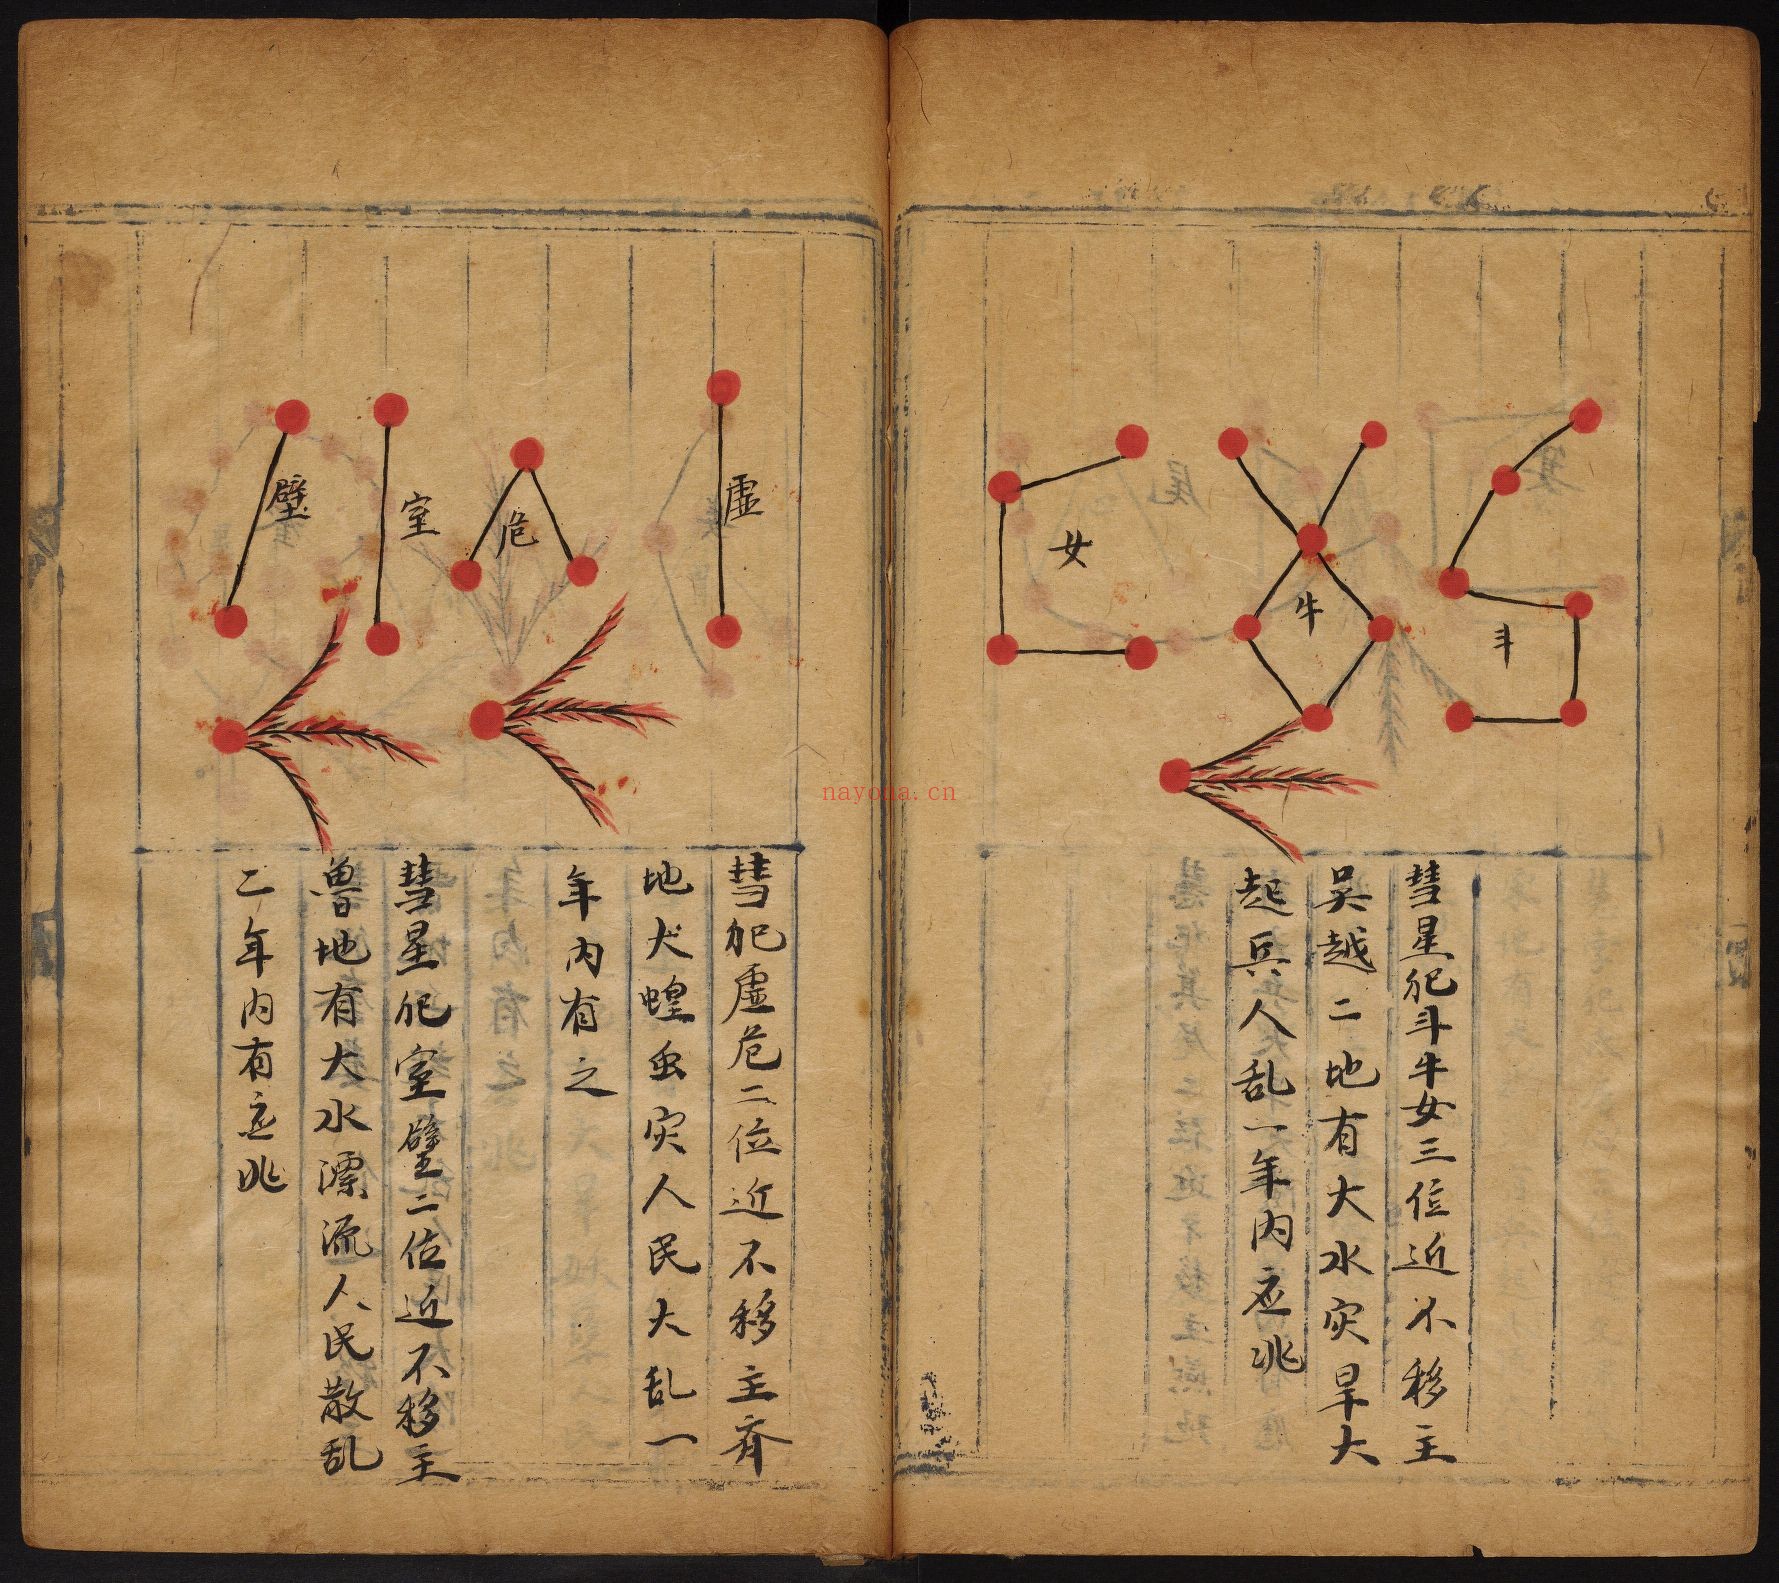 斗
牛
女
彗星犯斗牛女三位近不移主
吴越二地有大水灾旱大
起兵人乱一年内应兆
虚
危
室
壁
彗犯虚危二位近不移主齐
地犬蝗虫灾人民大乱一
年内有之
彗星犯室壁二位近不移主
鲁地有大水漂流人民散乱
二年内有应兆
nayona.cn